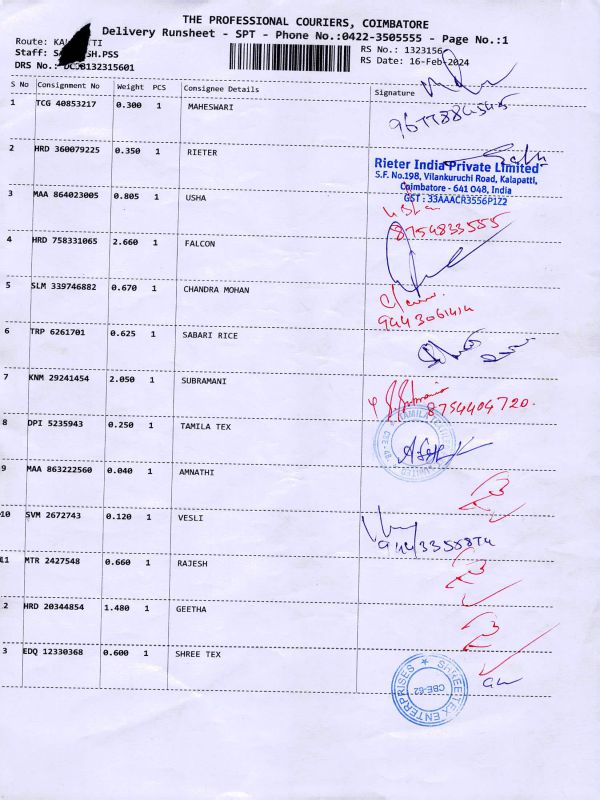 THE PROFESSIONAL COURIERS, COIMBATORE
Delivery Runsheet - SPT - Phone No.:0422-3505555 - Page No.:1
Route:
Staff: .PSS
RS No.: 1323156
DRS No.: 8132315601
RS Date: 16-Feb-2024
S No Consignment No Weight PCS Consignee Details Signature
1 TCG 40853217 0.300 1 MAHESWARI
2 HRD 360079225 0.350 1 RIETER
Rieter India Private Limited
S.F. No.198, Vilankuruchi Road, Kalapatti,
Coimbatore - 641 048, India
GST : 33AAACR3556P1Z2
3 MAA 864023005 0.805 1 USHA
8754833555
4 HRD 758331065 2.660 1 FALCON
5 SLM 339746882 0.670 1 CHANDRA MOHAN
6 TRP 6261701 0.625 1 SABARI RICE
7 KNM 29241454 2.050 1 SUBRAMANI
8754404720.
8 DPI 5235943 0.250 1 TAMILA TEX
9 MAA 863222560 0.040 1 AMNATHI
10 SVM 2672743 0.120 1 VESLI
11 MTR 2427548 0.660 1 RAJESH
2 HRD 20344854 1.480 1 GEETHA
3 EDQ 12330368 0.600 1 SHREE TEX
SHREE TEX ENTERPRISES
CBE-62